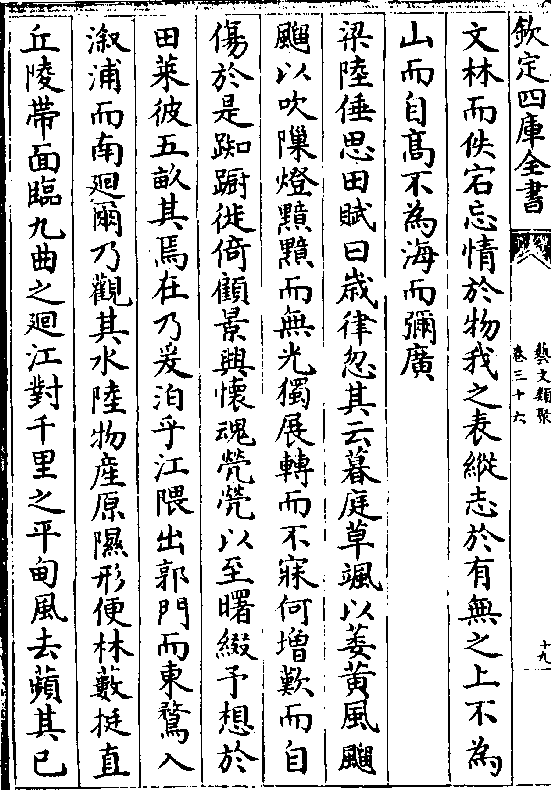 欽定四庫全書
藝文類聚
卷三十六
十九
文林而佚宕忘情於物我之表縱志於有無之上不為
山而自髙不為海而彌廣
梁陸倕思田賦曰歲律忽其云暮庭草颯以萎黄風飀
飀以吹隟燈黯黯而無光獨展轉而不寐何増歎而自
傷於是踟蹰徙倚顧景興懐魂煢煢以至曙綴予想於
田萊彼五畝其焉在乃爰泊乎江隈出郭門而東騖入
溆浦而南廻爾乃觀其水陸物産原隰形便林藪挺直
丘陵帶面臨九曲之廻江對千里之平甸風去蘋其已